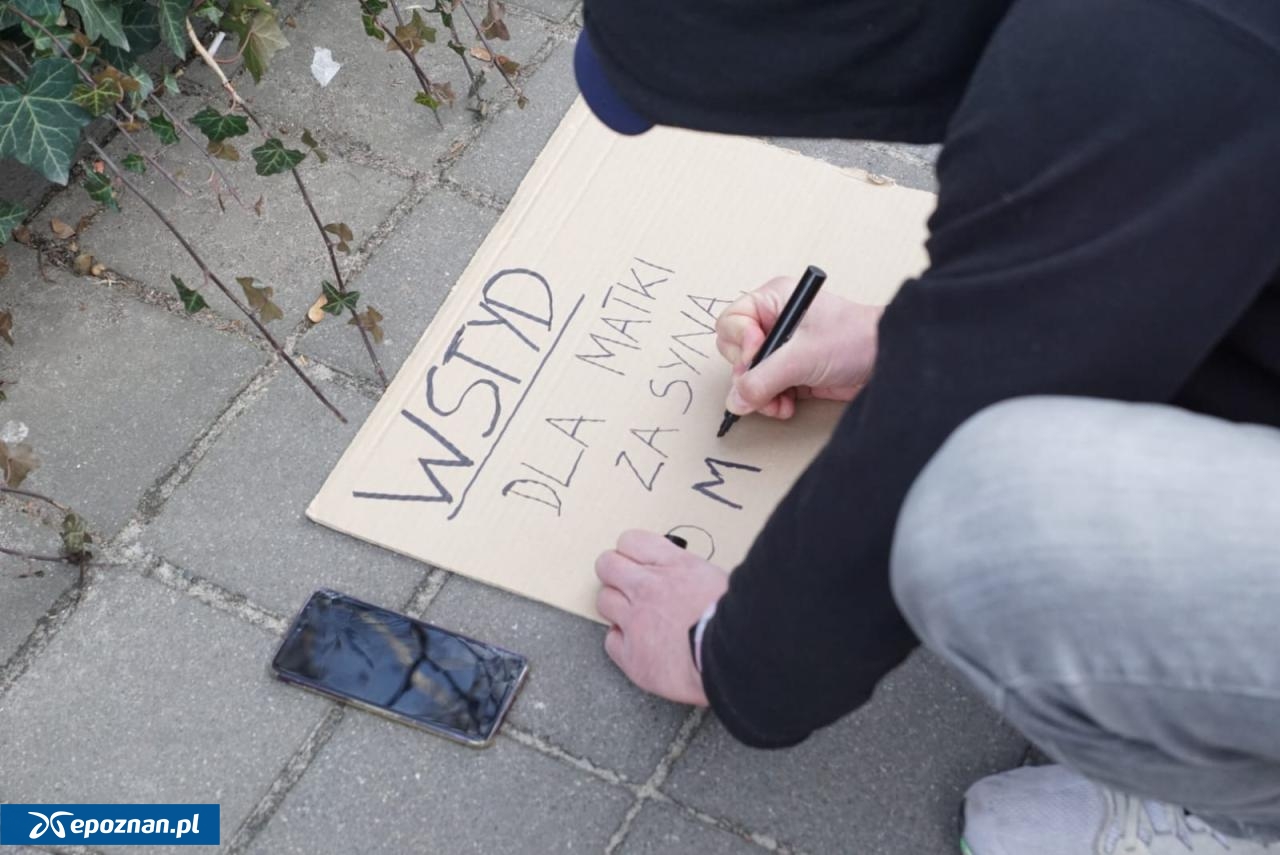 WSTYD
DLA MATKI
ZA SYNA
M
epoznan.pl